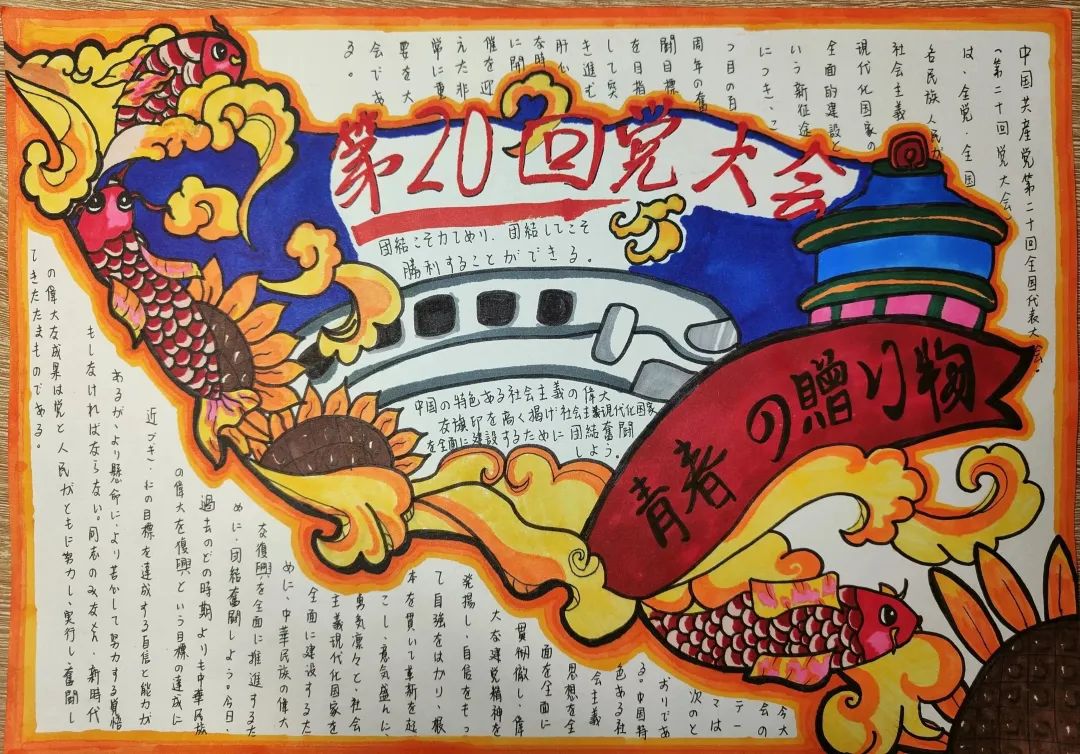 第20回党大会
団結こそ力であり、団結してこそ
勝利することができる。
中国共産党第二十回全国代表大会
(第二十回党大会)
は、全党・全国
各民族人民が
社会主義
現代化国家の
全面的建設と
いう新征途
につき、二
つ目の百
周年の奮
闘目標
を目指
して突
き進む
肝心
な時
に開
催を迎
えた非
常に重
要な大
会であ
る。
中国の特色ある社会主義の偉大
な旗印を高く揚げ社会主義現代化国家
を全面に建設するために団結奮闘
しよう。
青春の贈り物
今大
会の
テー
マは
次のと
おりであ
る。中国特
色ある社
会主義
思想を全
面を全面に
貫彻徹し、偉
大な建党精神を
発揚し、自信をもっ
て自強をはかり、根
本を貫いて革新を起
こし、意気盛んに、
勇気凛々と、社会
主義現代化国家を
全面に建設するた
めに、中華民族の偉大
な復興を全面に推進するた
めに、団結奮闘しよう。今日、
過去のどの時期よりも中華民族
の偉大な復興という目標の達成に
近づき、その目標を達成する自信と能力が
あるが、より懸命に、より苦かして努力する覚悟
もしなければならない。同志のみなさん、新時代
の偉大な成果は党と人民がともに努力し実行し、奮闘し
てきたたまものである。